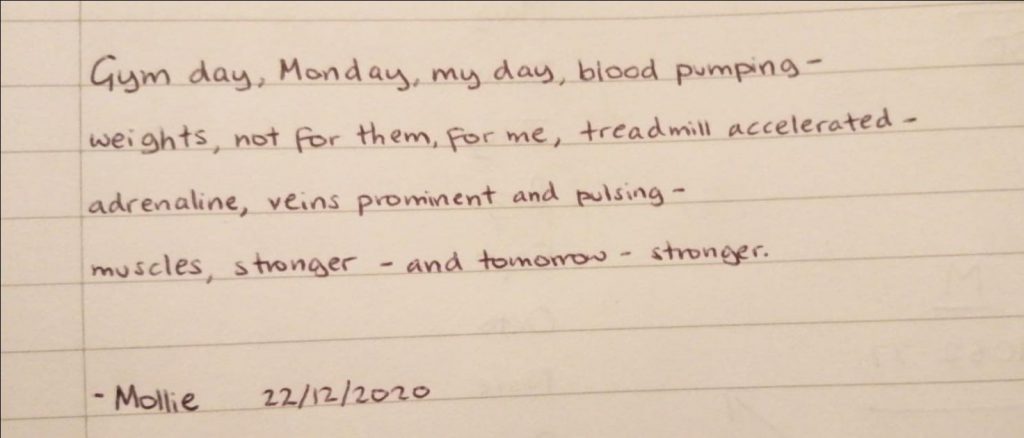 Gym day, Monday, my day, blood pumping -
weights, not for them, for me, treadmill accelerated -
adrenaline, veins prominent and pulsing -
muscles, stronger - and tomorrow - stronger.
- Mollie 22/12/2020